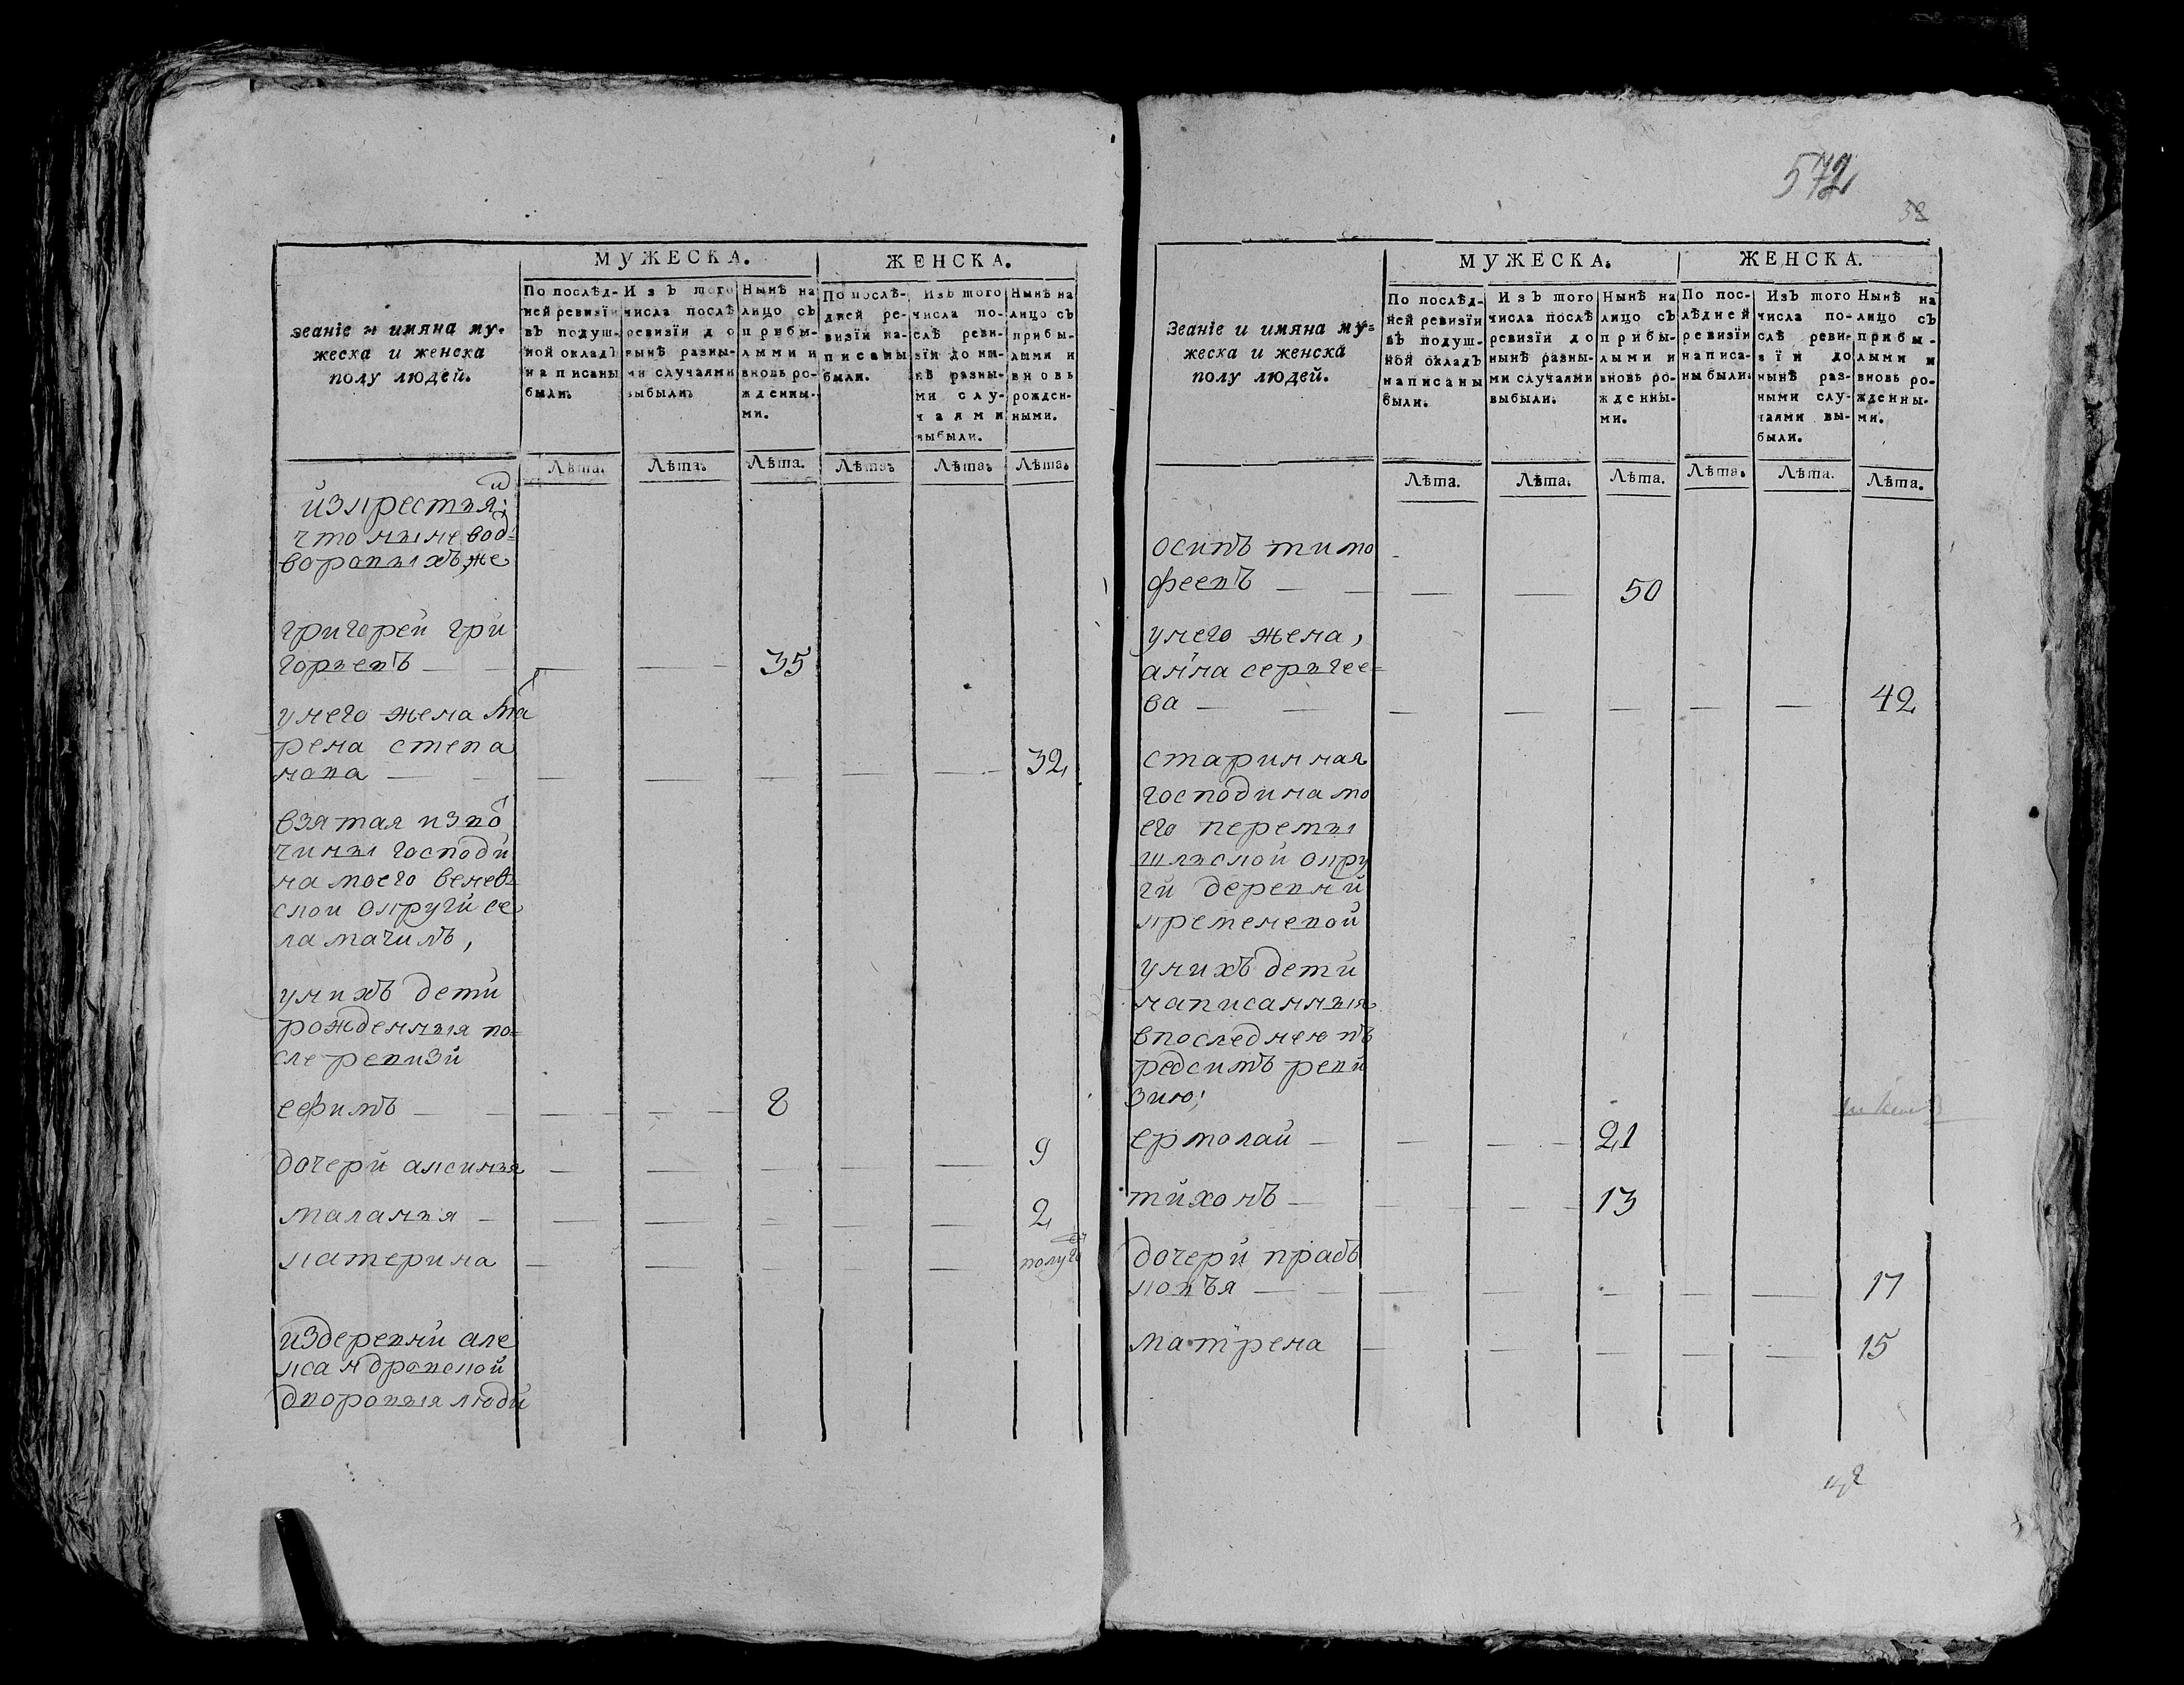 МУЖЕСКА.
ЖЕНСКА.
Званіе и имяна му-
жеска и женска
полу людей.
По послѣд-
ней ревизіи
въ подуш-
ной окладъ
написаны
были.
Изъ того
числа послѣ
ревизіи до
нынѣ разны-
ми случаями
выбыли.
Нынѣ на
лицо съ
прибы-
лыми и
вновь ро-
жденны-
ми.
По послѣ-
дней ре-
визіи на-
писаны
были.
Изъ того
числа по-
слѣ реви-
зіи до ны-
нѣ разны-
ми слу-
чаями
выбыли.
Нынѣ на
лицо съ
прибы-
лыми и
вновь
рожден-
ными.
Лѣта. Лѣта. Лѣта. Лѣта. Лѣта. Лѣта.
изкрестьян
что ныне вод=
воровыхъ же
григорей гри
горьевъ 35
унего жена ма
рена степа
нова 32
взятая из во
чины господи
на моего венев=
скои округи се
ла мачилъ,
унихъ дети
рожденныя по=
сле ревизи
ефимъ 8
дочери аксинья 9
маланья 2
катерина полуго
издеревни але
ксандровской
дворовыя люди
572
38
МУЖЕСКА.
ЖЕНСКА.
Званіе и имяна му=
жеска и женска
полу людей.
По послѣд-
ней ревизіи
въ подуш-
ной окладъ
написаны
были.
Изъ того
числа послѣ
ревизіи до
нынѣ разны-
ми случаями
выбыли.
Нынѣ на
лицо съ
прибы-
лыми и
вновь ро-
жденны-
ми.
По пос-
лѣдней
ревизіи
написа-
ны были.
Изъ того
числа по-
слѣ реви-
зіи до
нынѣ раз-
ными слу-
чаями вы-
были.
Нынѣ на
лицо съ
прибы-
лыми и
вновь ро-
жденны-
ми.
Лѣта. Лѣта. Лѣта. Лѣта. Лѣта. Лѣта.
осипъ тимо
феевъ 50
унего жена,
анна серьгее=
ва 42
старинная
господина мо
его перемы
шльской окру
ги деревни
кременевой
унихъ дети
написанныя
впоследнею пъ
редсимъ реви
зию;
ермолаи 21
тихонъ 13
дочери прабъ
ковъя 17
матрена 15